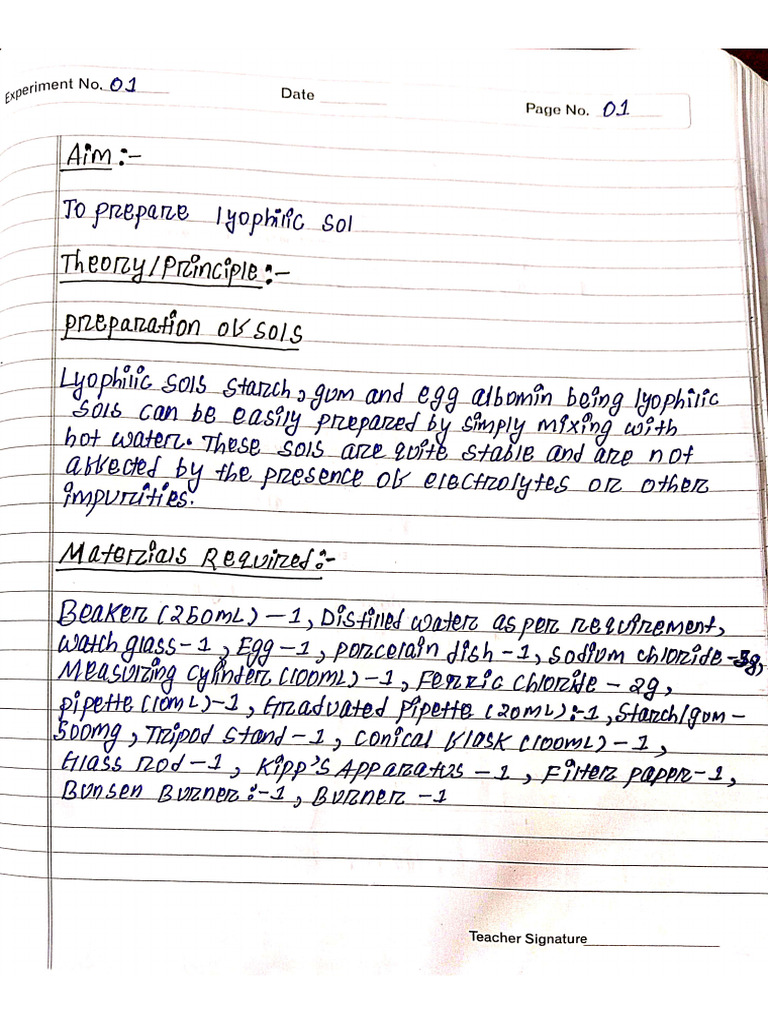 Experiment No. 01 Date Page No. 01
Aim :-
To prepare lyophilic sol
Theory/Principle :-
preparation of sols
Lyophilic sols starch, gum and egg albomin being lyophilic
sols can be easily prepared by simply mixing with
hot water. These sols are quite stable and are not
affected by the presence of electrolytes or other
impurities.
Materials Required :-
Beaker (250mL) - 1, Distilled water as per requirement,
watch glass - 1, Egg - 1, porcelain dish - 1, sodium chloride - 5g,
Measuring cylinder (100mL) - 1, Ferric chloride - 2g,
pipette (10mL) - 1, Graduated pipette (20mL) :- 1, Starch/gum -
500mg, Tripod stand - 1, conical flask (100mL) - 1,
Glass rod - 1, Kipp's Apparatus - 1, Filter paper - 1,
Bunsen Burner :- 1, Burner - 1
Teacher Signature